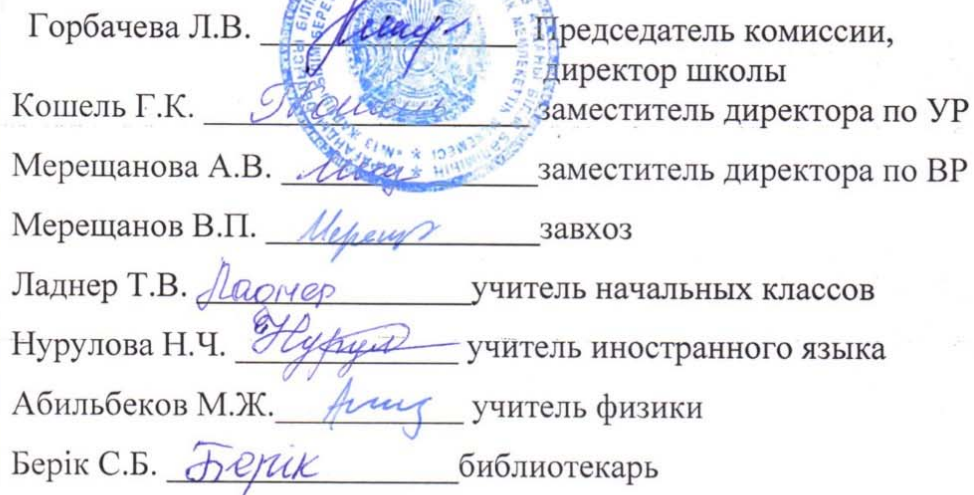 Горбачева Л.В. Председатель комиссии,
директор школы
Кошель Г.К. Кошель заместитель директора по УР
Мерещанова А.В. заместитель директора по ВР
Мерещанов В.П. завхоз
Ладнер Т.В. Ладнер учитель начальных классов
Нурулова Н.Ч. учитель иностранного языка
Абильбеков М.Ж. учитель физики
Берік С.Б. Берік библиотекарь